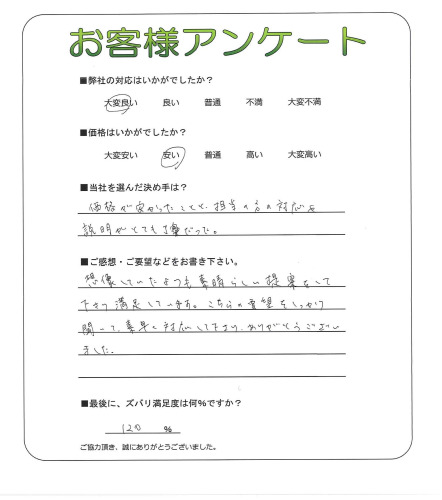 お客様アンケート
■弊社の対応はいかがでしたか？
大変良い 良い 普通 不満 大変不満
■価格はいかがでしたか？
大変安い 安い 普通 高い 大変高い
■当社を選んだ決め手は？
価格が安かったことと、担当の方の対応と
説明がとても丁寧だった。
■ご感想・ご要望などをお書き下さい。
想像していたよりも素晴らしい提案をして
下さり満足しています。こちらの要望をしっかり
聞いて、素早く対応して下さり、ありがとうござい
ました。
■最後に、ズバリ満足度は何％ですか？
120 %
ご協力頂き、誠にありがとうございました。